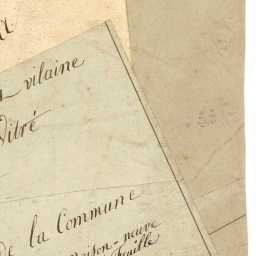 vilaine
Vitré
de la Commune
maison-neuve
feuille